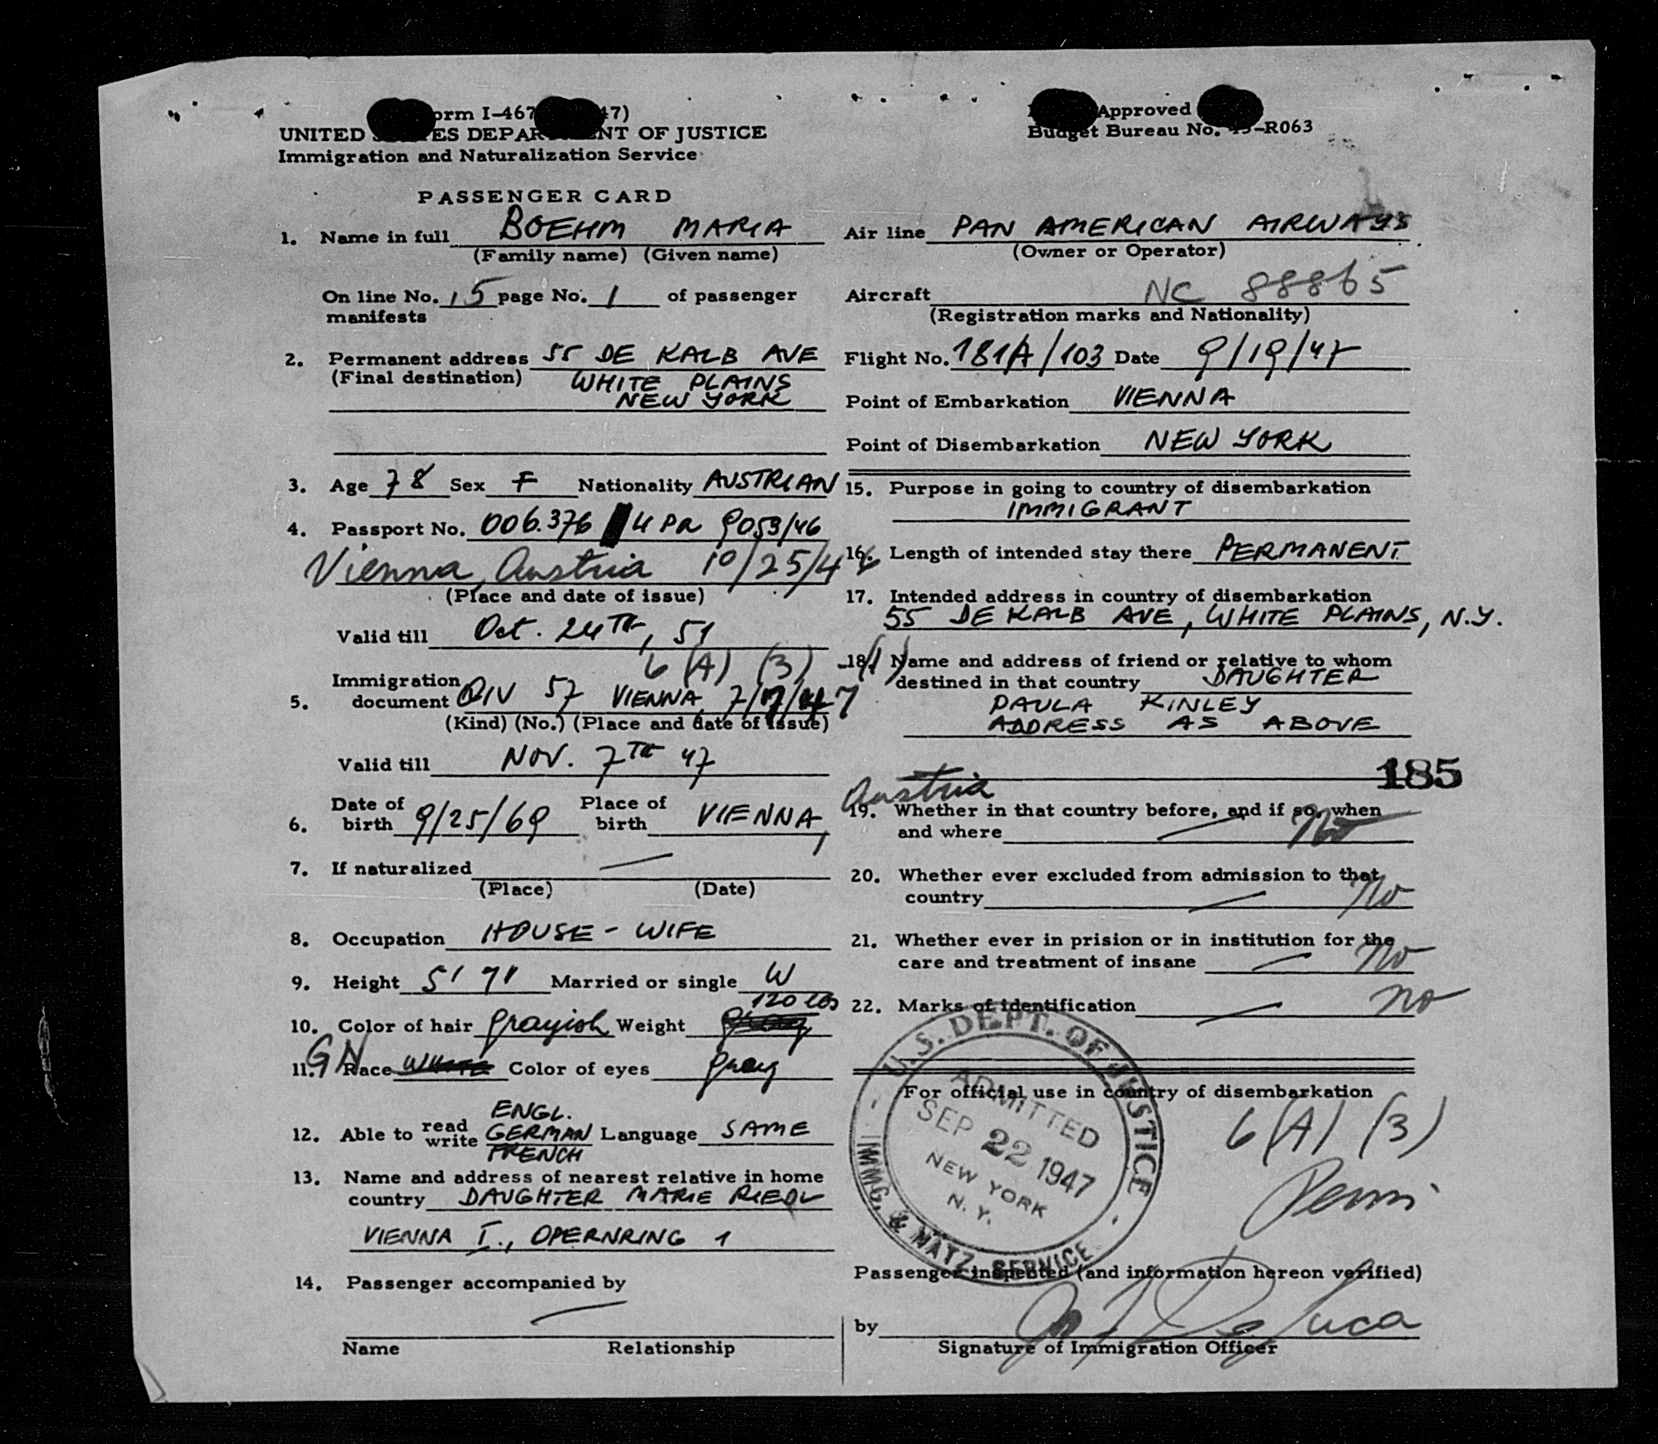 orm I-467 47)
UNITED STATES DEPARTMENT OF JUSTICE
Immigration and Naturalization Service
Approved
Budget Bureau No. 43-R063
PASSENGER CARD
1. Name in full BOEHM MARIA
(Family name) (Given name)
On line No. 15 page No. 1 of passenger
manifests
2. Permanent address 55 DE KALB AVE
(Final destination) WHITE PLAINS
NEW YORK
3. Age 78 Sex F Nationality AUSTRIAN
4. Passport No. 006.376 9053/46
Vienna, Austria 10/25/46
(Place and date of issue)
Valid till Oct. 24TH, 51
6 (A) (3) -(1)
Immigration
5. document QIV 57 VIENNA, 7/7/47
(Kind) (No.) (Place and date of issue)
Valid till NOV. 7TH 47
Date of Place of
6. birth 9/25/69 birth VIENNA,
7. If naturalized —
(Place) (Date)
8. Occupation HOUSE-WIFE
9. Height 5' 7" Married or single W
120 lbs
10. Color of hair grayish Weight
11. GN Race WHITE Color of eyes gray
ENGL.
12. Able to read write GERMAN Language SAME
FRENCH
13. Name and address of nearest relative in home
country DAUGHTER MARIE RIEDL
VIENNA I., OPERNRING 1
14. Passenger accompanied by
—
Name Relationship
Air line PAN AMERICAN AIRWAYS
(Owner or Operator)
Aircraft NC 88865
(Registration marks and Nationality)
Flight No. 181A/103 Date 9/19/47
Point of Embarkation VIENNA
Point of Disembarkation NEW YORK
15. Purpose in going to country of disembarkation
IMMIGRANT
16. Length of intended stay there PERMANENT
17. Intended address in country of disembarkation
55 DE KALB AVE, WHITE PLAINS, N.Y.
18. Name and address of friend or relative to whom
destined in that country DAUGHTER
PAULA KINLEY
ADDRESS AS ABOVE
185
Austria
19. Whether in that country before, and if so, when
and where — No
20. Whether ever excluded from admission to that
country — No
21. Whether ever in prision or in institution for the
care and treatment of insane — No
22. Marks of identification — no
For official use in country of disembarkation
6 (A) (3)
U.S. DEPT. OF JUSTICE
ADMITTED
SEP 22 1947
NEW YORK
N. Y.
IMMG. & NATZ. SERVICE
Passenger inspected (and information hereon verified)
by DeLuca
Signature of Immigration Officer